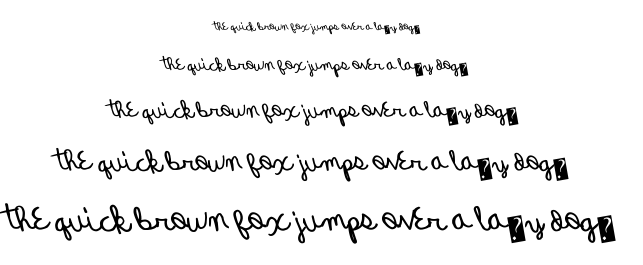 the quick brown fox jumps over a la?y dog?
the quick brown fox jumps over a la?y dog?
the quick brown fox jumps over a la?y dog?
the quick brown fox jumps over a la?y dog?
the quick brown fox jumps over a la?y dog?